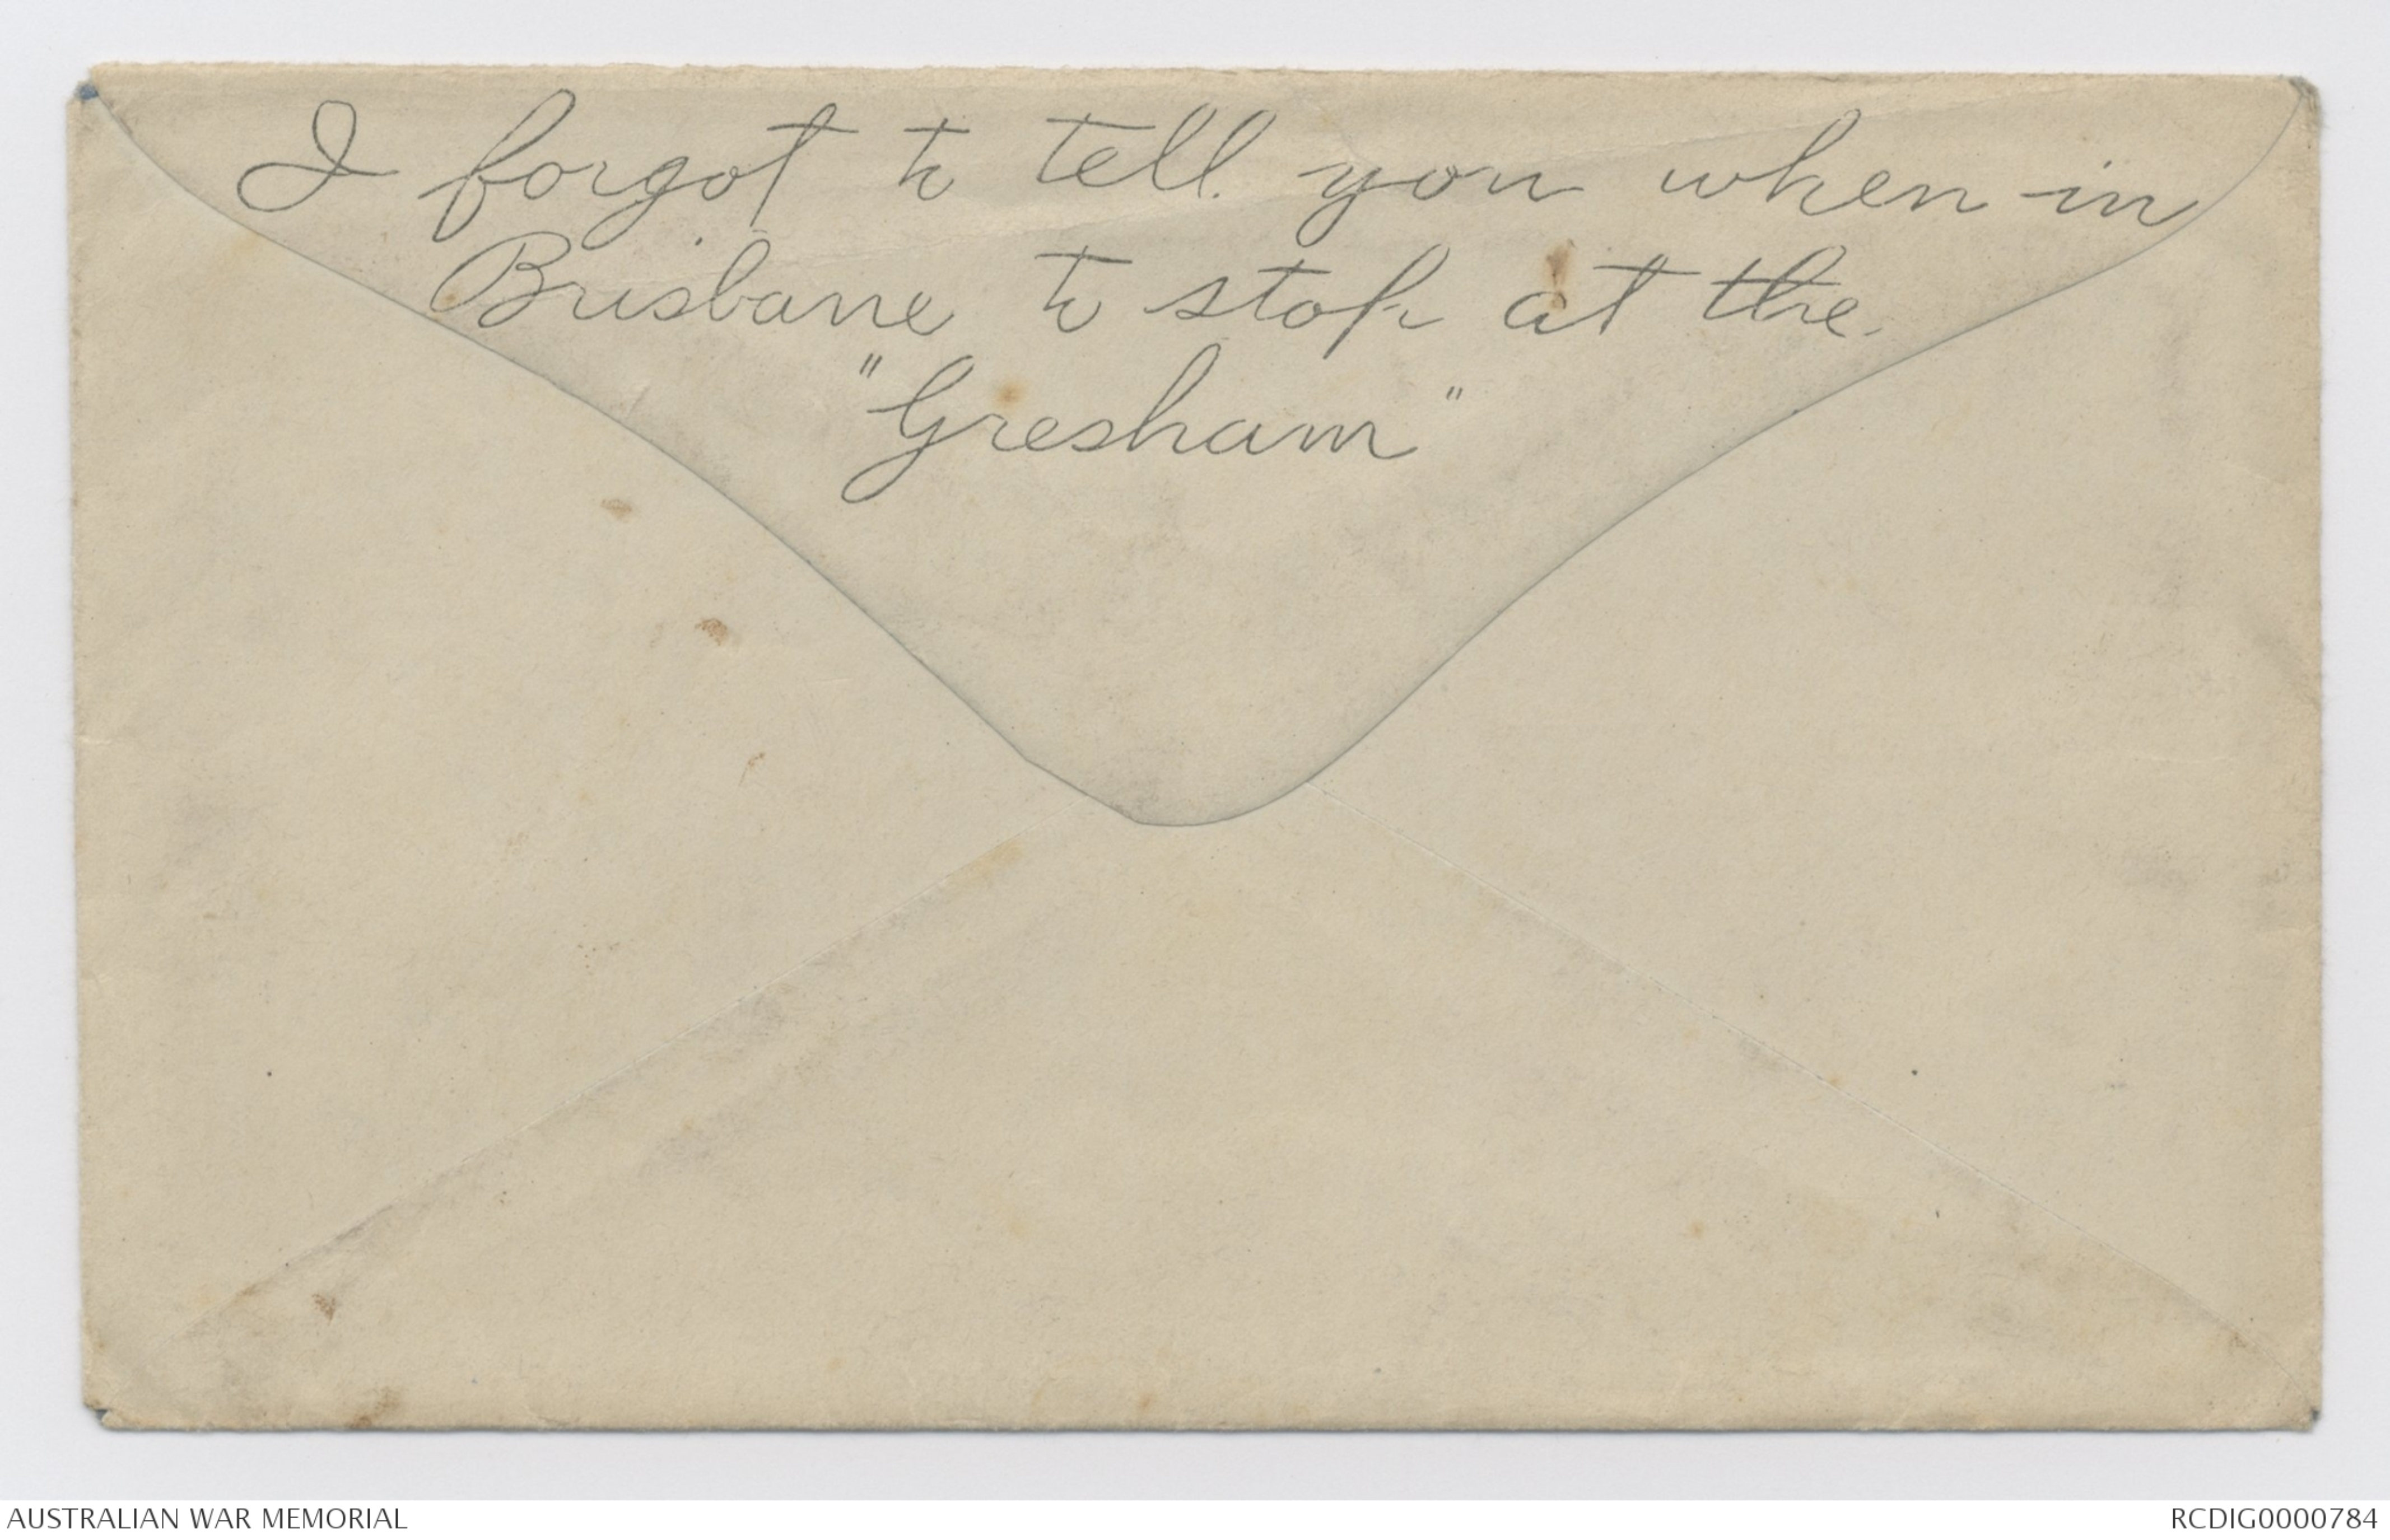 I forgot to tell you when in
Brisbane to stop at the
"Gresham"
AUSTRALIAN WAR MEMORIAL
RCDIG0000784